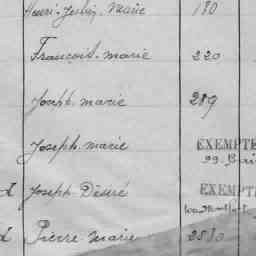 Henri-Julien-Marie 180
François-marie 220
Joseph-marie 289
Joseph-marie EXEMPTE
d Joseph-Désiré EXEMPTE
d Pierre Marie 2580